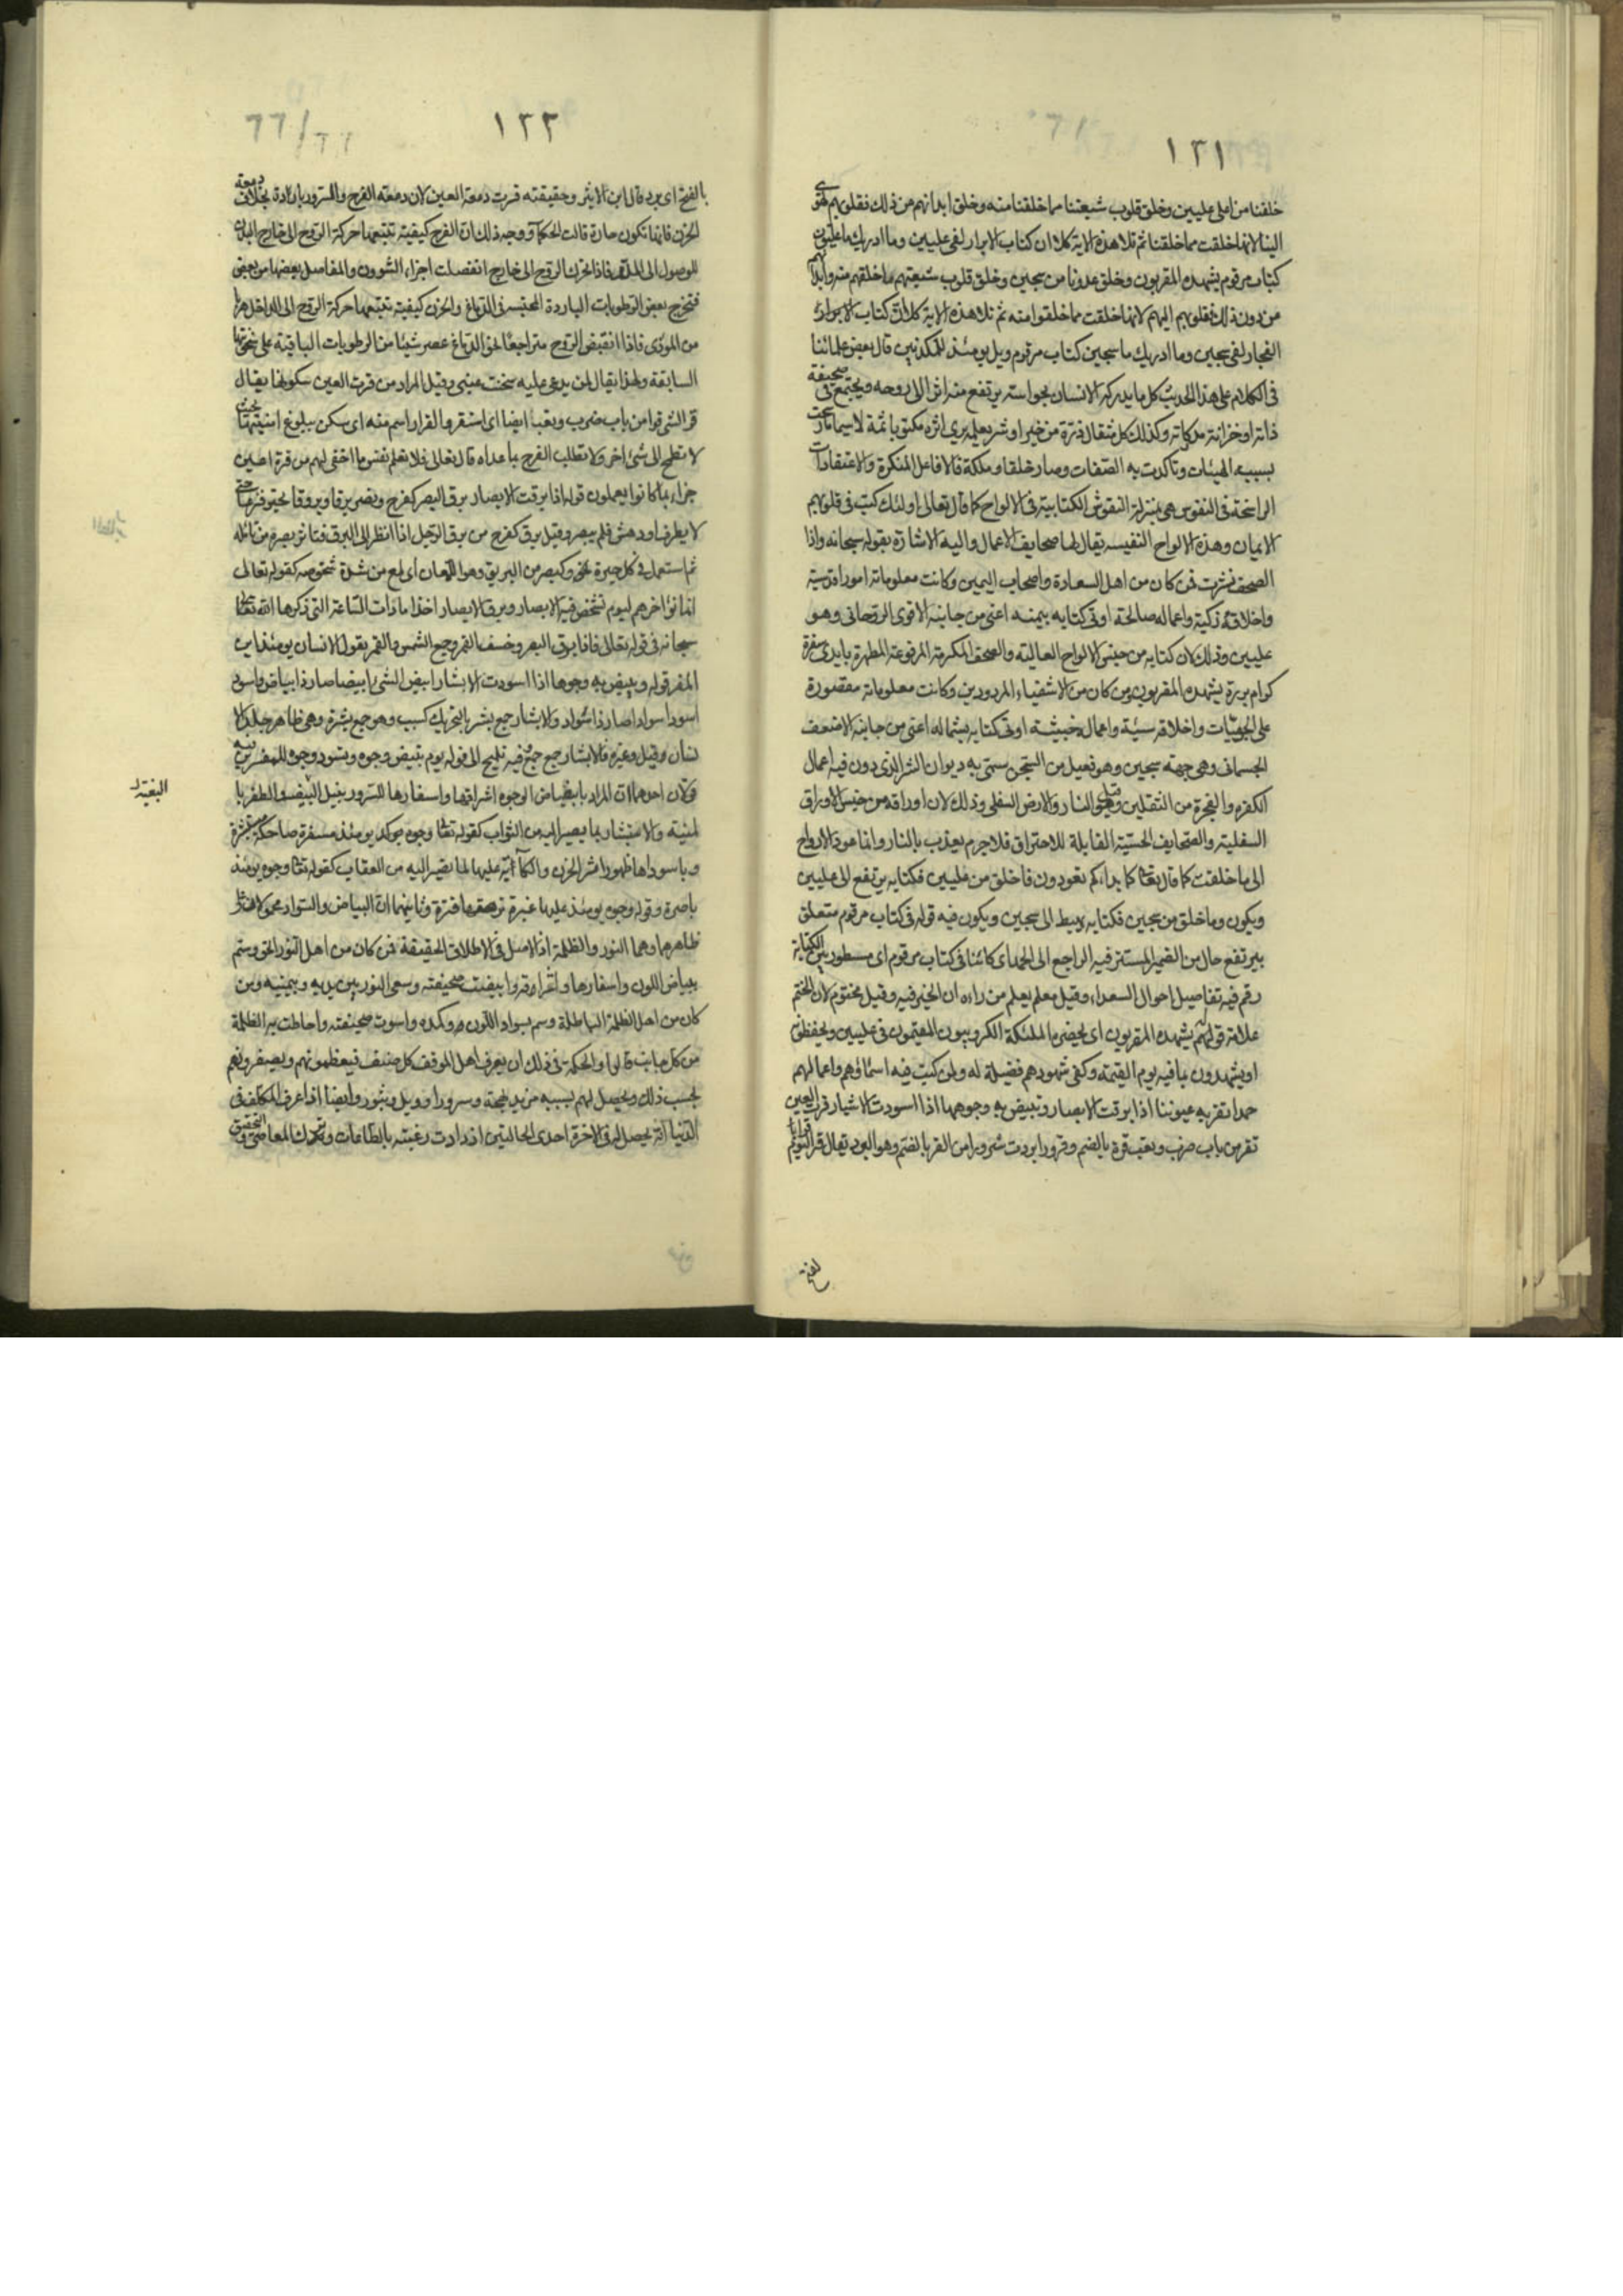 ١٣١
خلقنا من اعلى عليين وخلق قلوب شيعتنا مما خلقنا منه وخلق ابدانهم من ذلك فقلوبهم تهوى
الينا لانها خلقت مما خلقنا ثم تلا هذه الاية كلا ان كتاب الابرار لفى عليين وما ادريك ما عليون
كتاب مرقوم يشهده المقربون وخلق عدونا من سجين وخلق قلوب شيعتهم مما خلقهم منه وابدانهم
من دون ذلك فقلوبهم اليهم لانها خلقت مما خلقوا منه ثم تلا هذه الاية كلا ان كتاب
الفجار لفى سجين وما ادريك ما سجين كتاب مرقوم ويل يومئذ للمكذبين قال بعض علمائنا
فى الكلام على هذا الحديث كل ما يدركه الانسان بحواسه يرتفع منه اثر الى روحه ويجتمع فى صحيفة
ذاته او خزانة مدركاته وكذلك كل مثقال ذرة من خير او شر يعمله يرى اثره مكتوبا ثمة لاسيما ما رسخت
بسببه الهيئات وتاكدت به الصفات وصار خلقا وملكة فالافاعيل المتكررة والاعتقادات
الراسخة فى النفوس هى بمنزلة النقوش الكتابية فى الالواح كما قال تعالى اولئك كتب فى قلوبهم
الايمان وهذه الالواح النفيسه يقال لها صحايف الاعمال واليه الاشارة بقوله سبحانه واذا
الصحف نشرت فمن كان من اهل السعادة واصحاب اليمين وكانت معلوماته امورا قدسية
واخلاقه زكية واعماله صالحة اوتى كتابه بيمينه اعنى من جانبه الاقوى الروحانى وهو
عليين وذلك لان كتابه من جنس الالواح العالية والصحف المكرمة المرفوعة المطهرة بايدى سفرة
كرام بررة يشهده المقربون ومن كان من الاشقياء المردودين وكانت معلوماته مقصورة
على الجرميات واخلاقه سيئة واعماله خبيثة اوتى كتابه بشماله اعنى من جانبه الاضعف
الجسمانى وهى جهة سجين وهو فعيل من السجن سمى به ديوان الشر الذى دون فيه اعمال
الكفرة والفجرة من الثقلين وقيل هو النار والارض السفلى وذلك لان اوراقه من جنس الاوراق
السفلية والصحايف الحسية القابلة للاحتراق فلا جرم يعذب بالنار وانما عود الارواح
الى ما خلقت كما قال تعالى كما بداءكم تعودون فما خلق من عليين فكتابه يرتفع الى عليين
ويكون وما خلق من سجين فكتابه يهبط الى سجين ويكون فيه قوله فى كتاب مرقوم متعلق
بيرتفع حال من الضمير المستتر فيه الراجع الى الحمد اى كائنا فى كتاب مرقوم اى مسطور بين الكتابة
رقم فيه تفاصيل احوال السعداء وقيل معلم يعلم من راءه ان الخير فيه وقيل مختوم لان الختم
علامة قوله يشهده المقربون اى يحضره الملئكة الكروبيون المقيمون فى عليين ويحفظونه
او يشهدون بما فيه يوم القيمة وكفى شهودهم فضيلة له ولمن كتب فيه اسماؤهم واعمالهم
حمدا تقر به عيوننا اذا برقت الابصار وتبيض به وجوهنا اذا اسودت الابشار قرت العين
تقر من باب ضرب وتعب قرة بالضم وقرورا بردت سرورا من القر بالضم وهو البرد يقال قر اليوم قرا
١٣٢
بالفتح اى برد قال ابن الاثير وحقيقته قرت دمعة العين لان دمعة الفرح والسرور باردة بخلاف دمعة
الحزن فانها تكون حارة قالت الحكماء ووجه ذلك ان الفرح كيفية تتبعها حركة الروح الى خارج البدن
للوصول الى الملذ فاذا تحرك الروح الى خارج انفصلت اجزاء الشوون والمفاصل بعضها من بعض
فتخرج بعض الرطوبات الباردة المحتبسة فى الدماغ والحزن كيفية تتبعها حركة الروح الى الداخل هربا
من الموذى فاذا انقبض الروح متراجعا الى الدماغ عصر شيئا من الرطوبات الباقية على سخونتها
السابقة ولهذا يقال لمن يدعى عليه سخنت عينه وقيل المراد من قرت العين سكونها يقال
قر الشئ قرا من باب ضرب وتعب ايضا اى استقر والقرار اسم منه اى سكن ببلوغ امنيتها بحيث
لا تطمح الى شئ اخر ولا تطلب الفرح بما عداه قال تعالى فلا تعلم نفس ما اخفى لهم من قرة اعين
جزاء بما كانوا يعملون قوله اذا برقت الابصار برق البصر كفرح ونصر برقا وبروقا تحير فزعا حتى
لا يطرف او دهش فلم يبصر وقيل برق كفرح من برق الرجل اذا نظر الى البرق فتاثر بصره من تامله
ثم استعمل فى كل حيرة وكنصر من البريق وهو اللمعان اى لمع من شدة شخوصه كقوله تعالى
انما نؤخرهم ليوم تشخص فيه الابصار وبرق الابصار احد امارات الساعة التى ذكرها الله تعالى
سبحانه فى قوله تعالى فاذا برق البصر وخسف القمر وجمع الشمس والقمر يقول الانسان يومئذ اين
المفر قوله وتبيض به وجوهنا اذا اسودت الابشار ابيض الشئ ابيضاضا صار ذا بياض واسود
اسودادا صار ذا سواد والابشار جمع بشر بالتحريك كسبب وهو جمع بشرة وهى ظاهر جلد الا
نسان وقيل وغيره فالابشار جمع جمع وفيه تلميح الى قوله يوم تبيض وجوه وتسود وجوه للمفسرين فيه
قولان احدهما ان المراد بابيضاض الوجوه اشراقها واسفارها للسرور بنيل البغية والظفر با
لمنية والاستبشار بما يصير اليه من الثواب كقوله تعالى وجوه يومئذ مسفرة ضاحكة مستبشرة
وباسودادها ظهور اثر الحزن والكآبة عليها لما يصير اليه من العقاب كقوله تعالى وجوه يومئذ
باصرة وقوله وجوه يومئذ عليها غبرة ترهقها قترة وثانيهما ان البياض والسواد محمولان على
ظاهرهما وهما النور والظلمة اذ الاصل فى الاطلاق الحقيقة فمن كان من اهل النور الحق وسم
ببياض اللون واسفارها واشراقه وابيضت صحيفته وسعى النور بين يديه وبيمينه ومن
كان من اهل الظلمة الباطلة وسم بسواد اللون وكمده واسودت صحيفته واحاطت به الظلمة
من كل جانب قالوا والحكمة فى ذلك ان يعرف اهل الموقف كل صنف فيعظمونهم ويصغرونهم
بحسب ذلك ويحصل لهم بسببه مزيد بهجة وسرورا وويل وثبور وايضا اذا عرف المكلف فى
الدنيا انه يحصل له فى الاخرة احدى الحالتين ازدادت رغبته بالطاعات وترك المعاصى والتحقيق
البغية